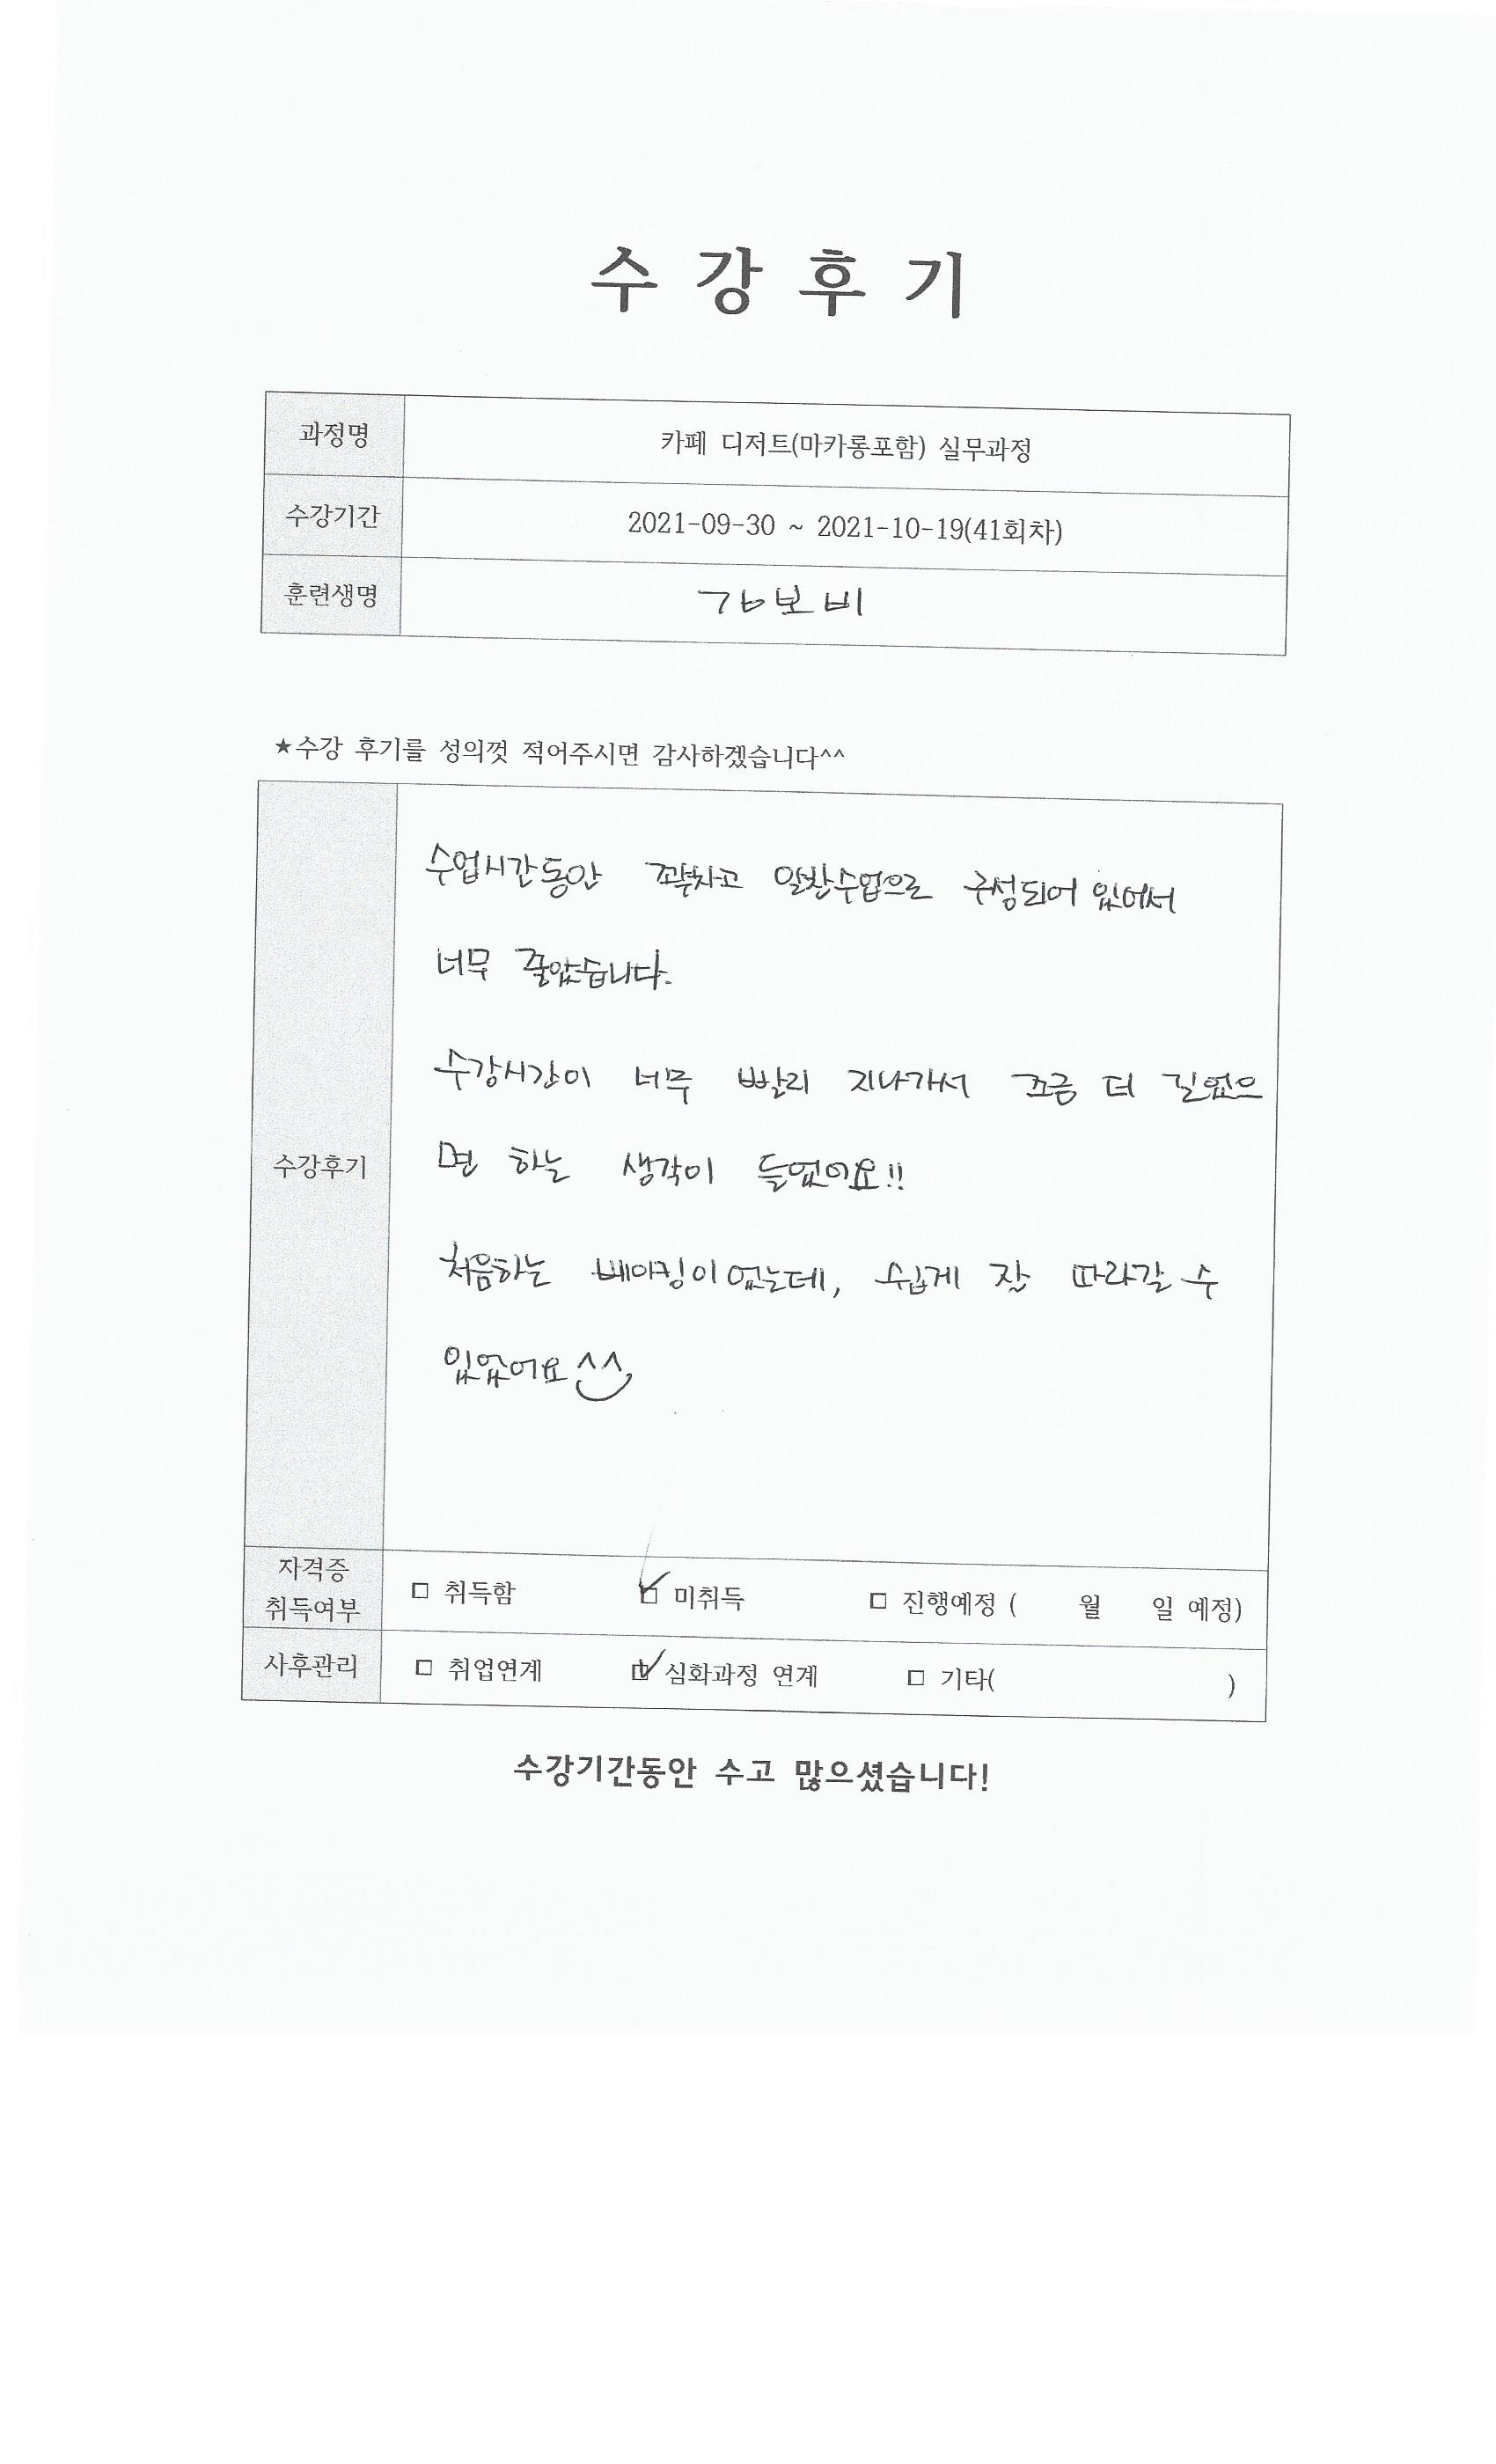 수강후기
과정명 카페 디저트(마카롱포함) 실무과정
수강기간 2021-09-30 ~ 2021-10-19(41회차)
훈련생명 보비
★수강 후기를 성의껏 적어주시면 감사하겠습니다^^
수강후기
수업시간동안 꽉차고 알찬수업으로 구성되어 있어서
너무 좋았습니다.
수강시간이 너무 빨리 지나가서 조금 더 길었으
면 하는 생각이 들었어요!!
처음하는 베이킹이었는데, 쉽게 잘 따라갈 수
있었어요^^
자격증
취득여부 □ 취득함 ☑ 미취득 □ 진행예정 ( 월 일 예정)
사후관리 □ 취업연계 ☑ 심화과정 연계 □ 기타( )
수강기간동안 수고 많으셨습니다!